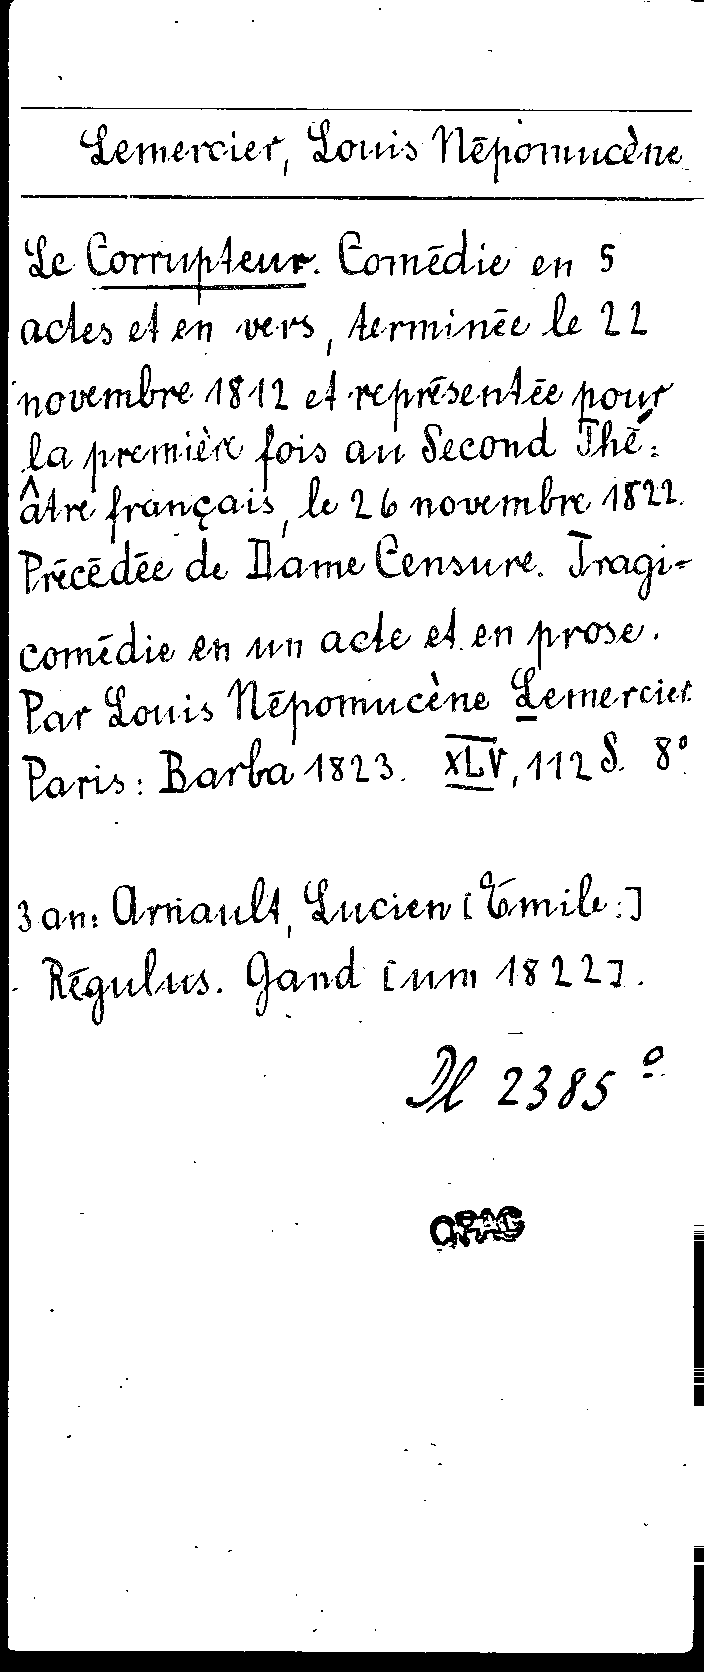 Lemercier, Louis Népomucène
Le Corrupteur. Comédie en 5
actes et en vers, terminée le 22
novembre 1812 et représentée pour
la première fois au Second Thé:
âtre français, le 26 novembre 1822.
Précédée de Dame Censure. Tragi-
comédie en un acte et en prose.
Par Louis Népomucène Lemercier.
Paris: Barba 1823. XLV, 112 S. 8°
3 an: Arnault, Lucien [Emile:]
Régulus. Gand [um 1822].
2385 º
OPAC